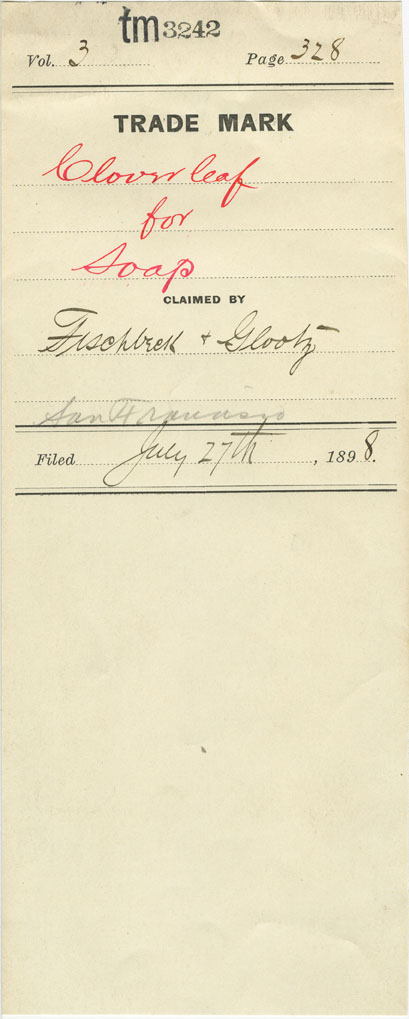 tm3242
Vol. 3 Page 328
TRADE MARK
Clover leaf
for
Soap
CLAIMED BY
Fischbeck + Glootz
San Francisco
Filed July 27th, 1898.